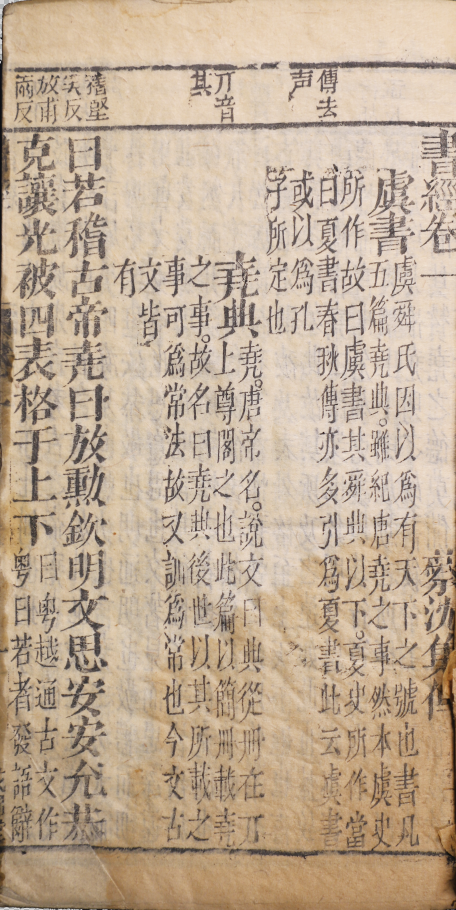 書經卷一
蔡沈集傳
虞書
虞舜氏因以爲有天下之號也書凡
五篇堯典雖紀唐堯之事然本虞史
所作故曰虞書其舜典以下夏史所作當
曰夏書春秋傳亦多引爲夏書此云虞書
或以爲孔
子所定也
堯典
堯唐帝名說文曰典從冊在丌
上尊閣之也此篇以簡冊載堯
之事故名曰堯典後世以其所載之
事可爲常法故又訓爲常也今文古
文皆
有
曰若稽古帝堯曰放勳欽明文思安安允恭
克讓光被四表格于上下
曰粵越通古文作
粵曰若者發語辭
傳去
声
丌音
其
稽堅
奚反
放甫
兩反